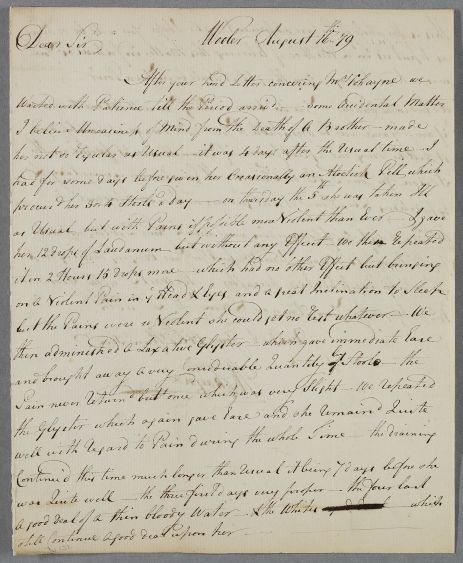 Dear Sir Wooler August 16th 79
After your kind Letter concerning Mrs we
waited with Patience till the Period arrived some Accidental Matter
I believe Uneasiness of Mind from the Death of a Brother made
her not so regular as Usual it was 4 days after the Usual time I
had for some days before given her Occasionally an Aloetick Pill which
procur'd her 3 or 4 Stools a day on thursday the 5th she was taken Ill
as Usual but with Pains if possible more Violent than ever I gave
her 12 drops of Laudanum but without any Effect We then Repeated
it in 2 Hours 15 drops more which had no other Effect but bringing
on a Violent Pain in ye Head & Eyes and a great Inclination to Sleep
but the Pains were so Violent she could get no Rest whatever We
then administred a Laxative Glyster which gave immediate Ease
and brought away a very considerable Quantity of Stools the
Pain never Return'd but once which was very Slight We Repeated
the Glyster which again gave Ease and she Remain'd Quite
well with Regard to Pain during the whole Time the draining
Continued this time much longer than Usual it being 7 days before she
was Quite well the three first days very proper the four last
a good deal of a thin bloody Water & the Whites which
still Continue a good deal upon her